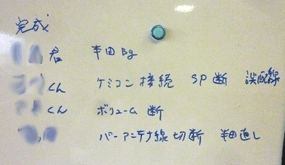 完成
君 半田 Bg
くん ケミコン 接続 SP 断 誤配線
くん ボリューム 断
バーアンテナ線 切断 半田直し